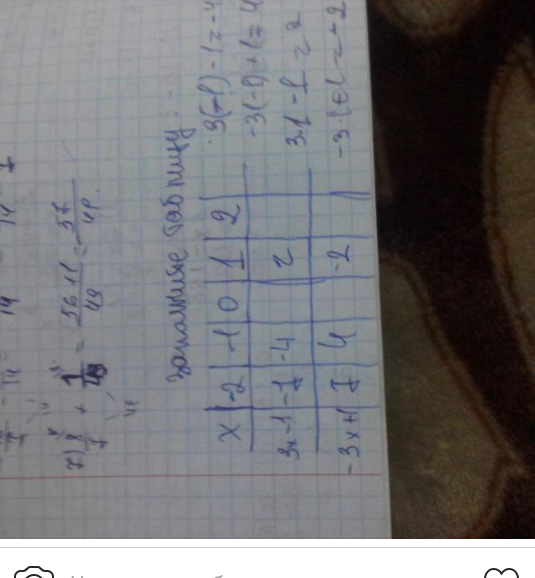 7) 8/7 + 1/49 = 56+1/49 = 57/49
Заполните таблицу.
x | -2 | -1 | 0 | 1 | 2
3x-1 | -7 | -4 | | 2 |
-3x+1 | 7 | 4 | | -2 |
3(-1)-1=-4
-3(-1)+1=4
3·1-1=2
-3·1+1=-2